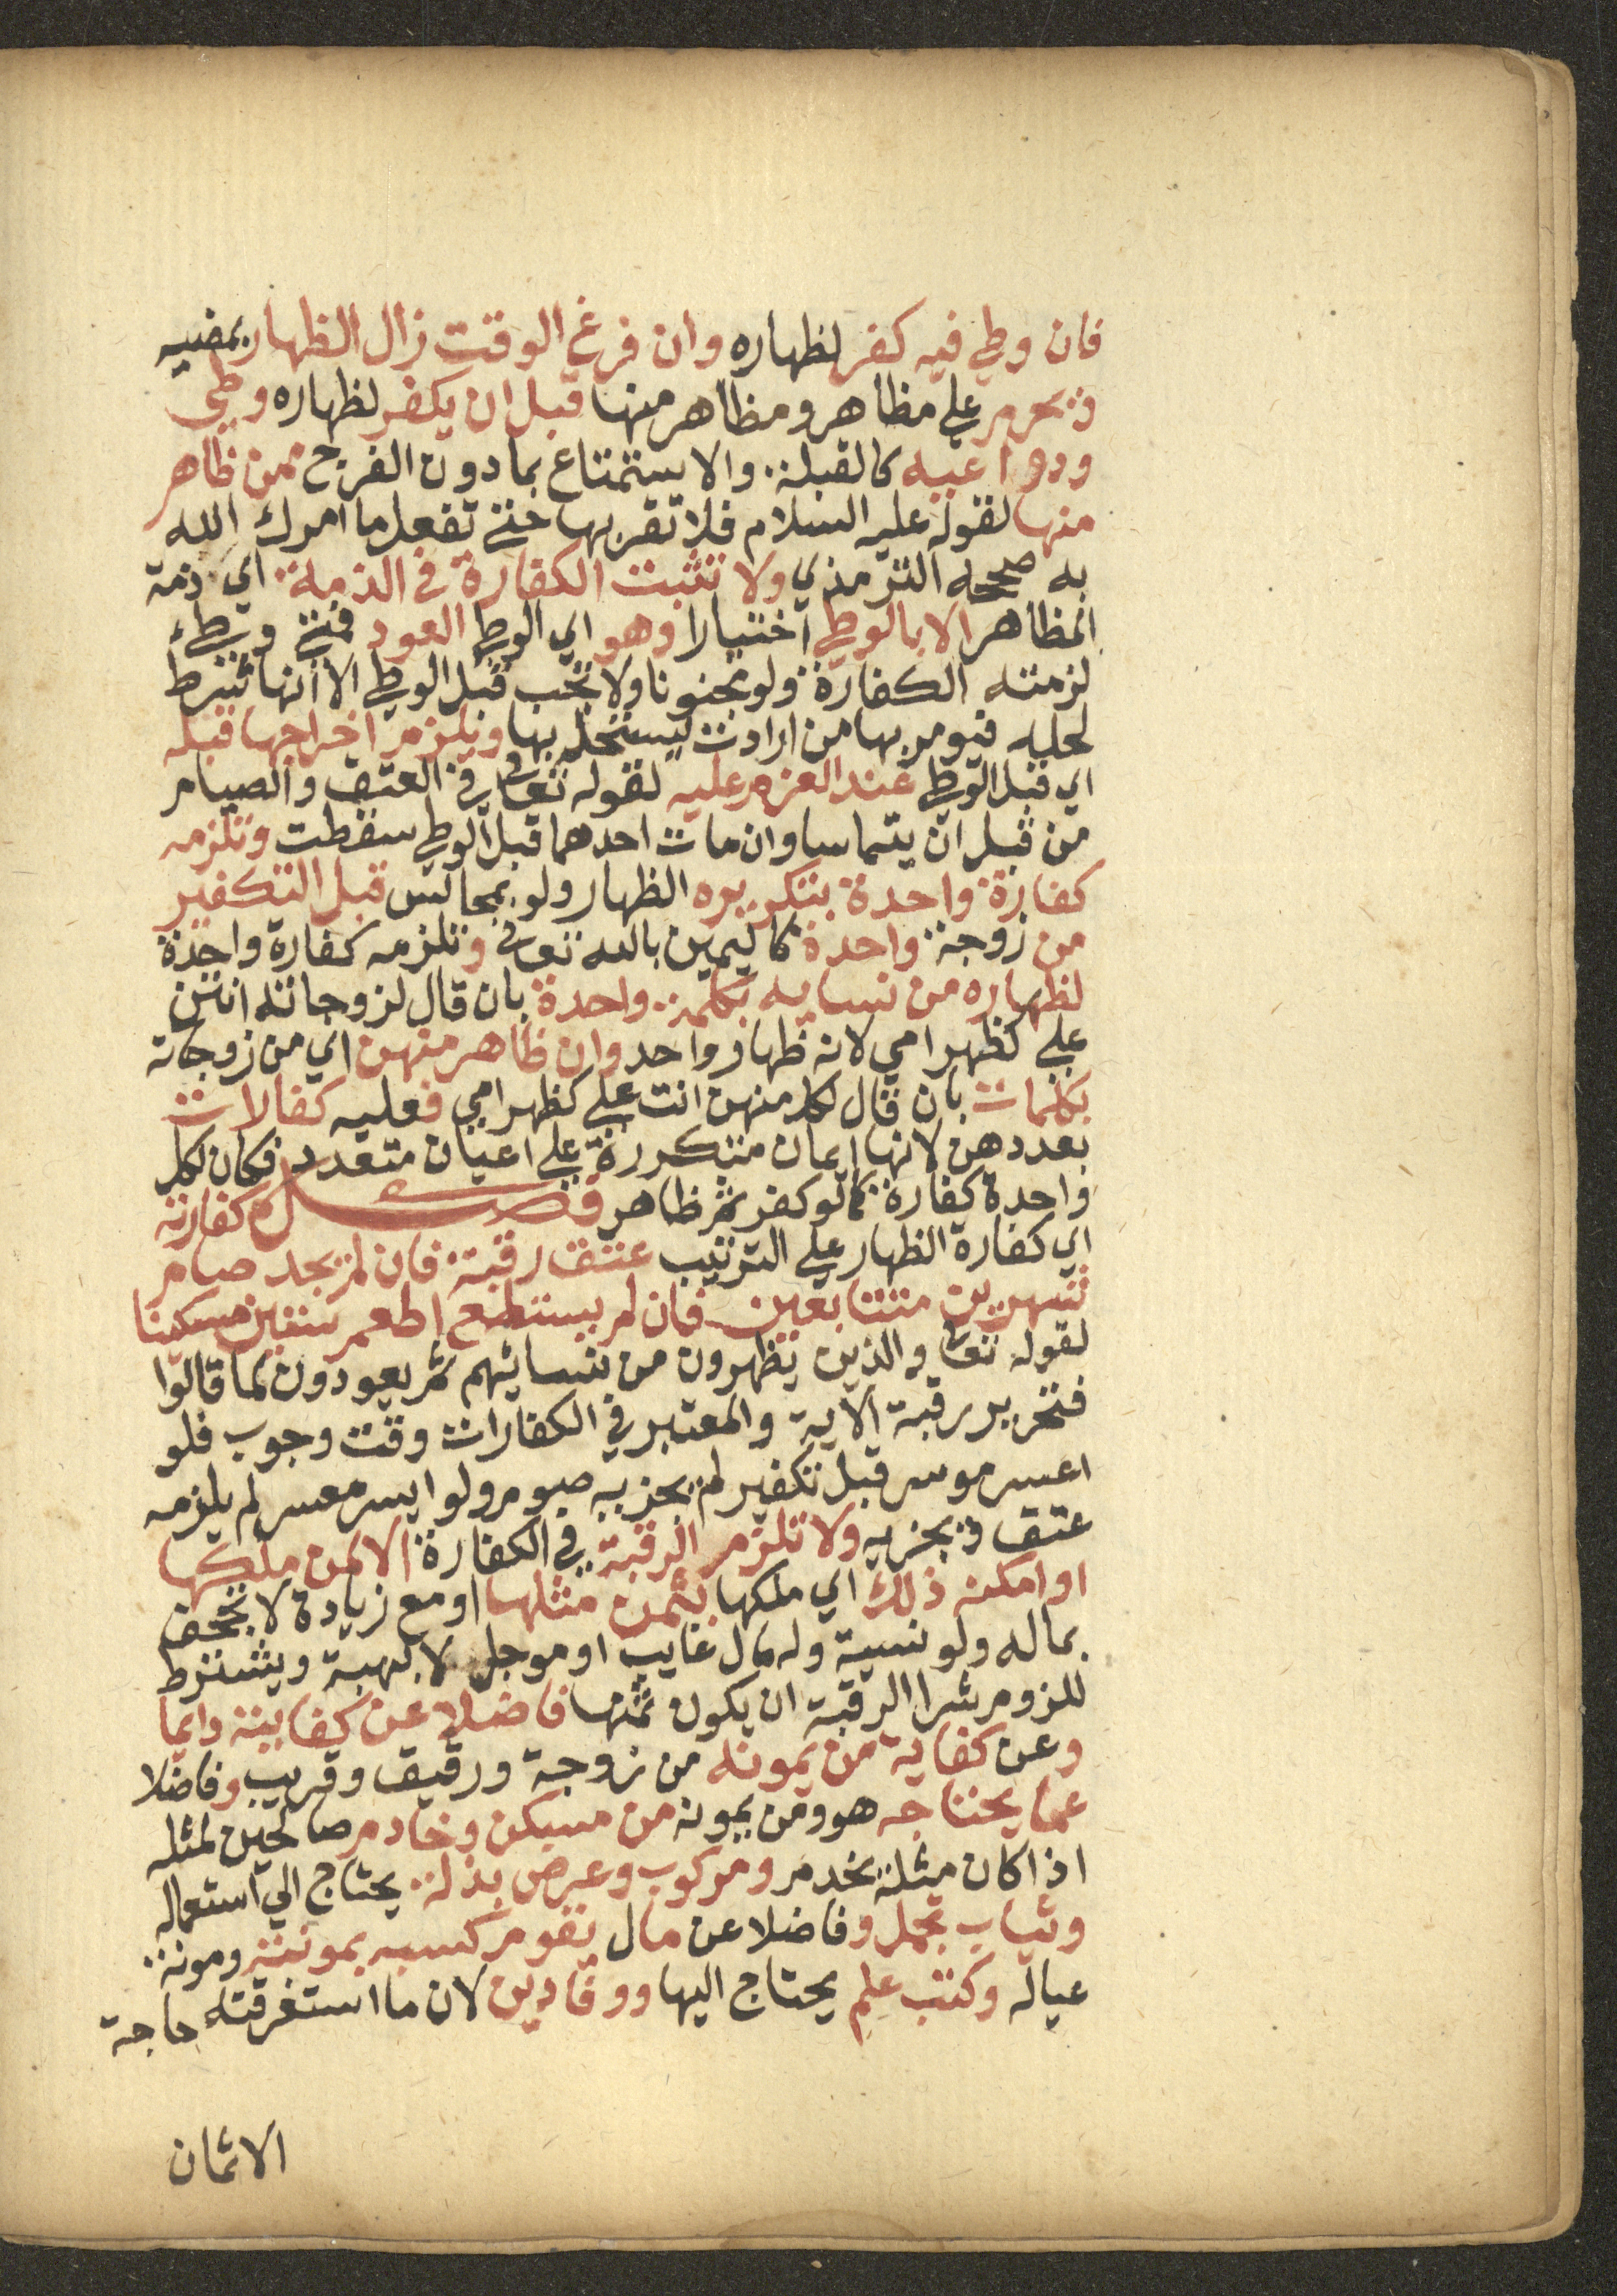 فان وطي فيه كفر لظهاره وان فرغ الوقت زال الظهار بمضيه
ويحرم علي مظاهر ومظاهر منها قبل ان يكفر لظهاره وطي
ودواعيه كالقبلة والاستمتاع بما دون الفرج ممن ظاهر
منها لقوله عليه السلام فلا تقربها حتي تفعل ما امرك الله
به صححه الترمذي ولا تثبت الكفارة في الذمة اي ذمة
المظاهر الا بالوطي اختيارا وهو اي الوطي العود فمتي وطيء
لزمته الكفارة ولو مجنونا ولا تجب قبل الوطي الا انها شرط
لحله فيومر بها من ارادت ليستحله بها ويلزم اخراجها قبله
اي قبل الوطي عند العزم عليه لقوله تعالى في العتق والصيام
من قبل ان يتماسا وان مات احدهما قبل الوطي سقطت وتلزمه
كفارة واحدة بتكريره الظهار ولو بمجالس قبل التكفير
من زوجة واحدة كاليمين بالله تعالى وتلزمه كفارة واحدة
لظهاره من نسايه بكلمة واحدة بان قال لزوجاته انتن
علي كظهر امي لانه ظهار واحد وان ظاهر منهن اي من زوجاته
بكلمات بان قال لكل منهن انت علي كظهر امي فعليه كفالات
بعددهن لانها ايمان متكررة علي اعيان متعدد فكان لكل
واحدة كفارة كما لو كفر ثم ظاهر فصل كفارته
اي كفارة الظهار علي الترتيب عتق رقبة فان لم يجد صام
شهرين متتابعين فان لم يستطع اطعم ستين مسكينا
لقوله تعالى والذين يظهرون من نسائهم ثم يعودون لما قالوا
فتحرير رقبة الاية والمعتبر في الكفارات وقت وجوب فلو
اعسر موسر قبل تكفير لم يجزيه صوم ولو ايسر معسر لم يلزمه
عتق ويجزيه ولا تلزم الرقبة في الكفارة الا لمن ملكها
او امكنه ذلك اي ملكها بثمن مثلها او مع زيادة لا تجحف
بماله ولو نسية وله مال غايب او موجل لا بهبة ويشترط
للزوم شرا الرقبة ان يكون ثمنها فاضلا عن كفايته دايما
وعن كفاية من يمونه من زوجة ورقيق وقريب وفاضلا
عما يحتاجه هو ومن يمونه من مسكن وخادم صالحين لمثله
اذا كان مثله يخدم ومركوب وعرض بذلة يحتاج الي استعماله
وثياب تجمل وفاضلا عن مال يقوم كسبه بمونته ومونة
عياله وكتب علم يحتاج اليها ووفا دين لان ما استغرقته حاجة
الاثمان